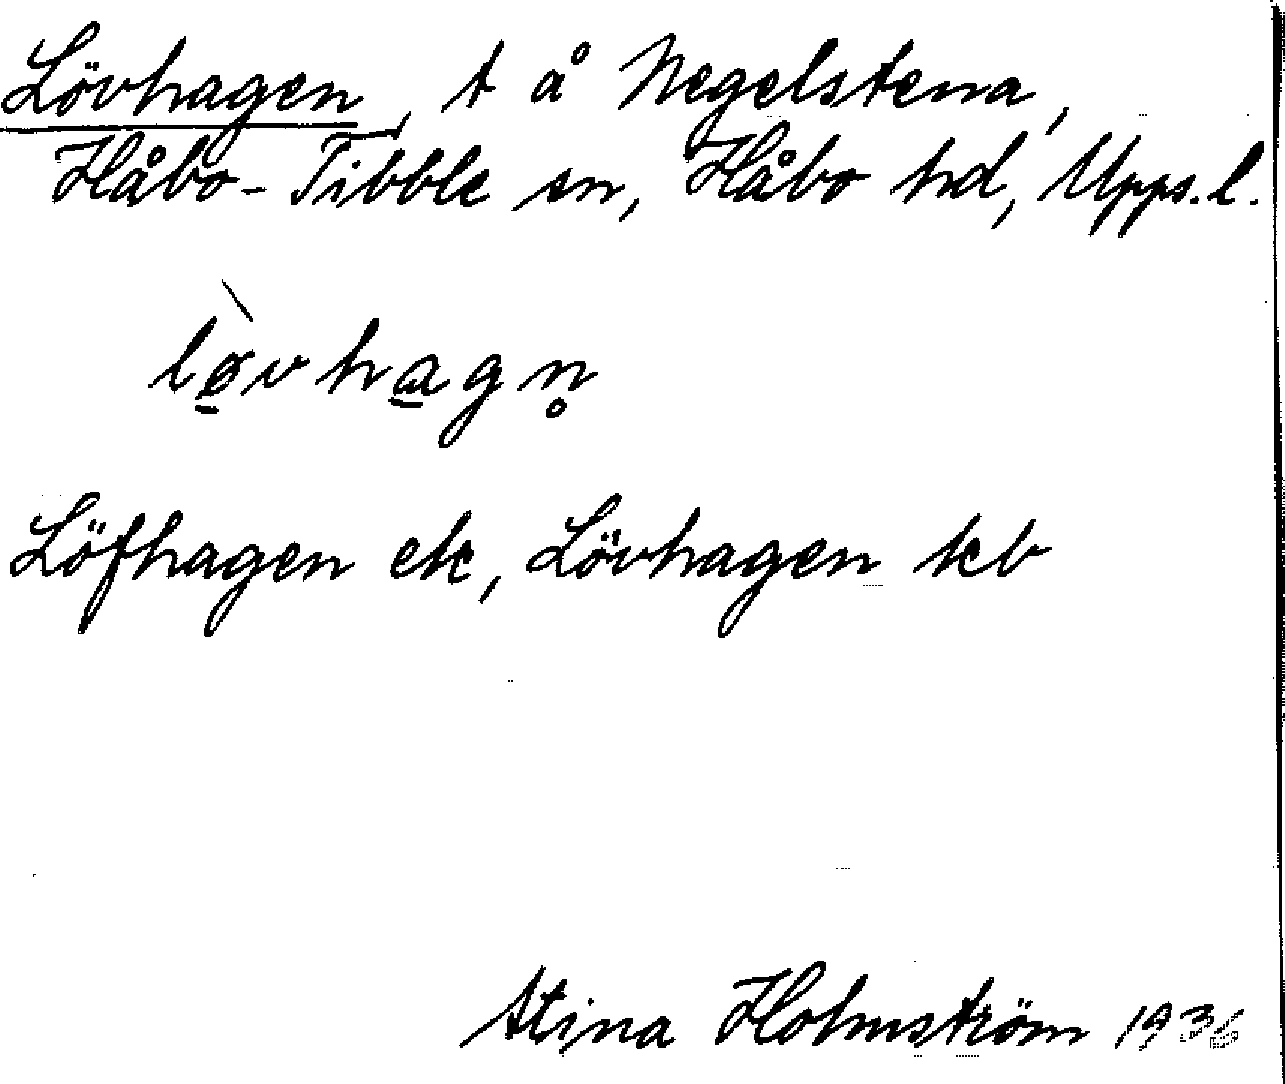 Lövhagen, t å Negelstena,
Håbo-Tibble sn, Håbo hd, Upps.l.
lø̱̀vha̱gn̥
Löfhagen ek, Lövhagen kb
Stina Holmström 1936